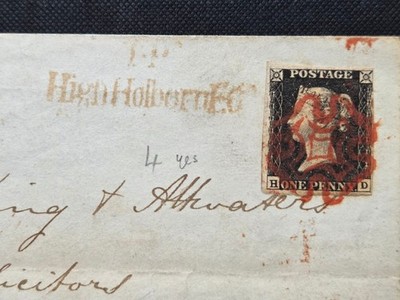 T.P
High Holborn EO
POSTAGE
H ONE PENNY D
4 yes
& Attwaters
Solicitors